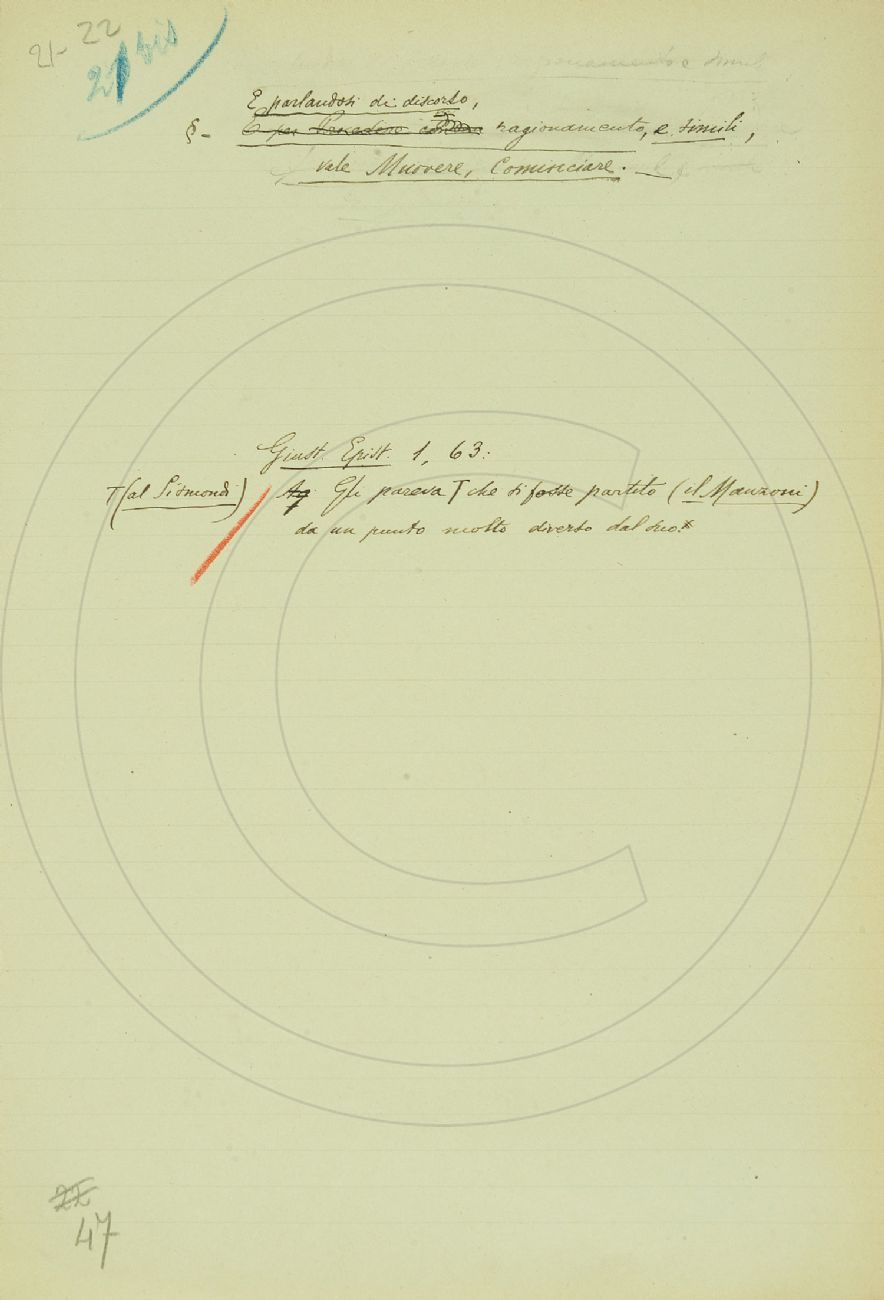 21-22
21 bis
E parlandosi di discorso,
§ - ragionamento, e simili,
vale Muovere, Cominciare. —
Giust. Epist. 1, 63:
T (al Sismondi) Gli pareva T che si fosse partito (il Manzoni)
da un punto molto diverso dal suo.
22
47